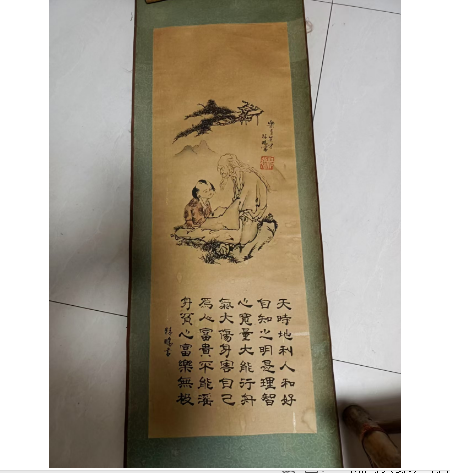 天時地利人和好
自知之明是理智
心寬量大能行舟
氣大傷身害自己
爲心富貴不能淫
身貧心富樂無极